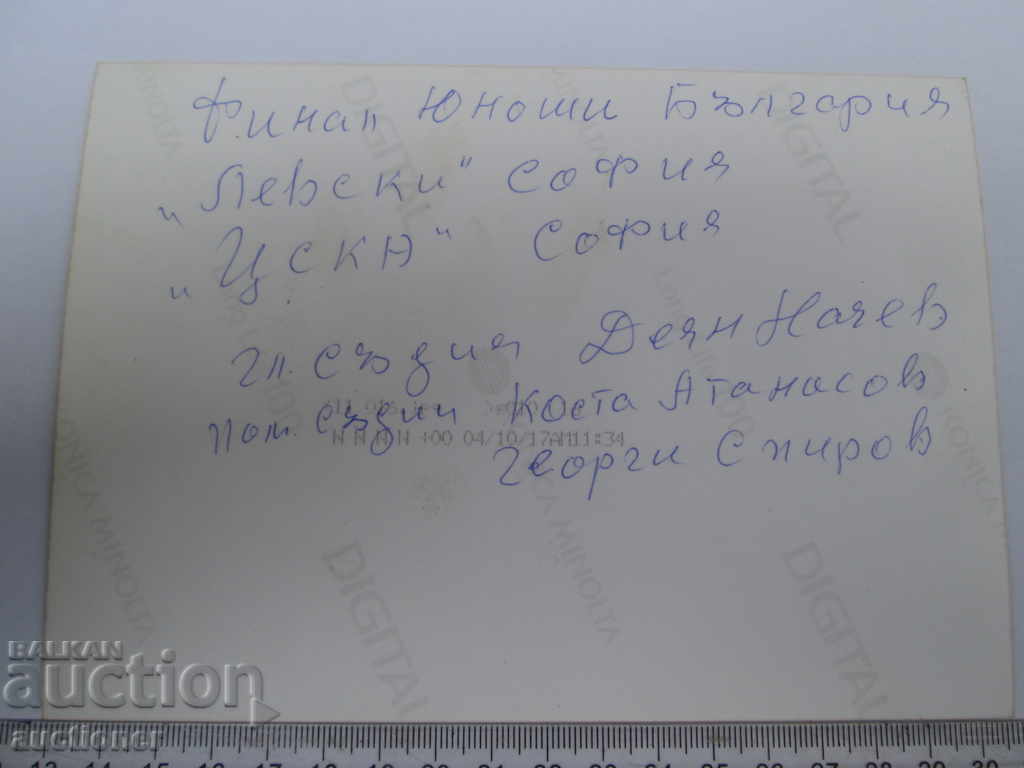 Финал Юноши България
„Левски" София
„ЦСКА" София
гл. съдия Деян Начев
пом. съдии Коста Атанасов
N N N N +00 04/10/17AM11:34
Георги Спиров
DIGITAL
DIGITAL
KONICA MINOLTA
KONICA MINOLTA
KONICA MINOLTA
DIGITAL
DIGITAL
BALKAN
auction
auctioner
13 14 15 16 17 18 19 20 21 22 23 24 25 26 27 28 29 30